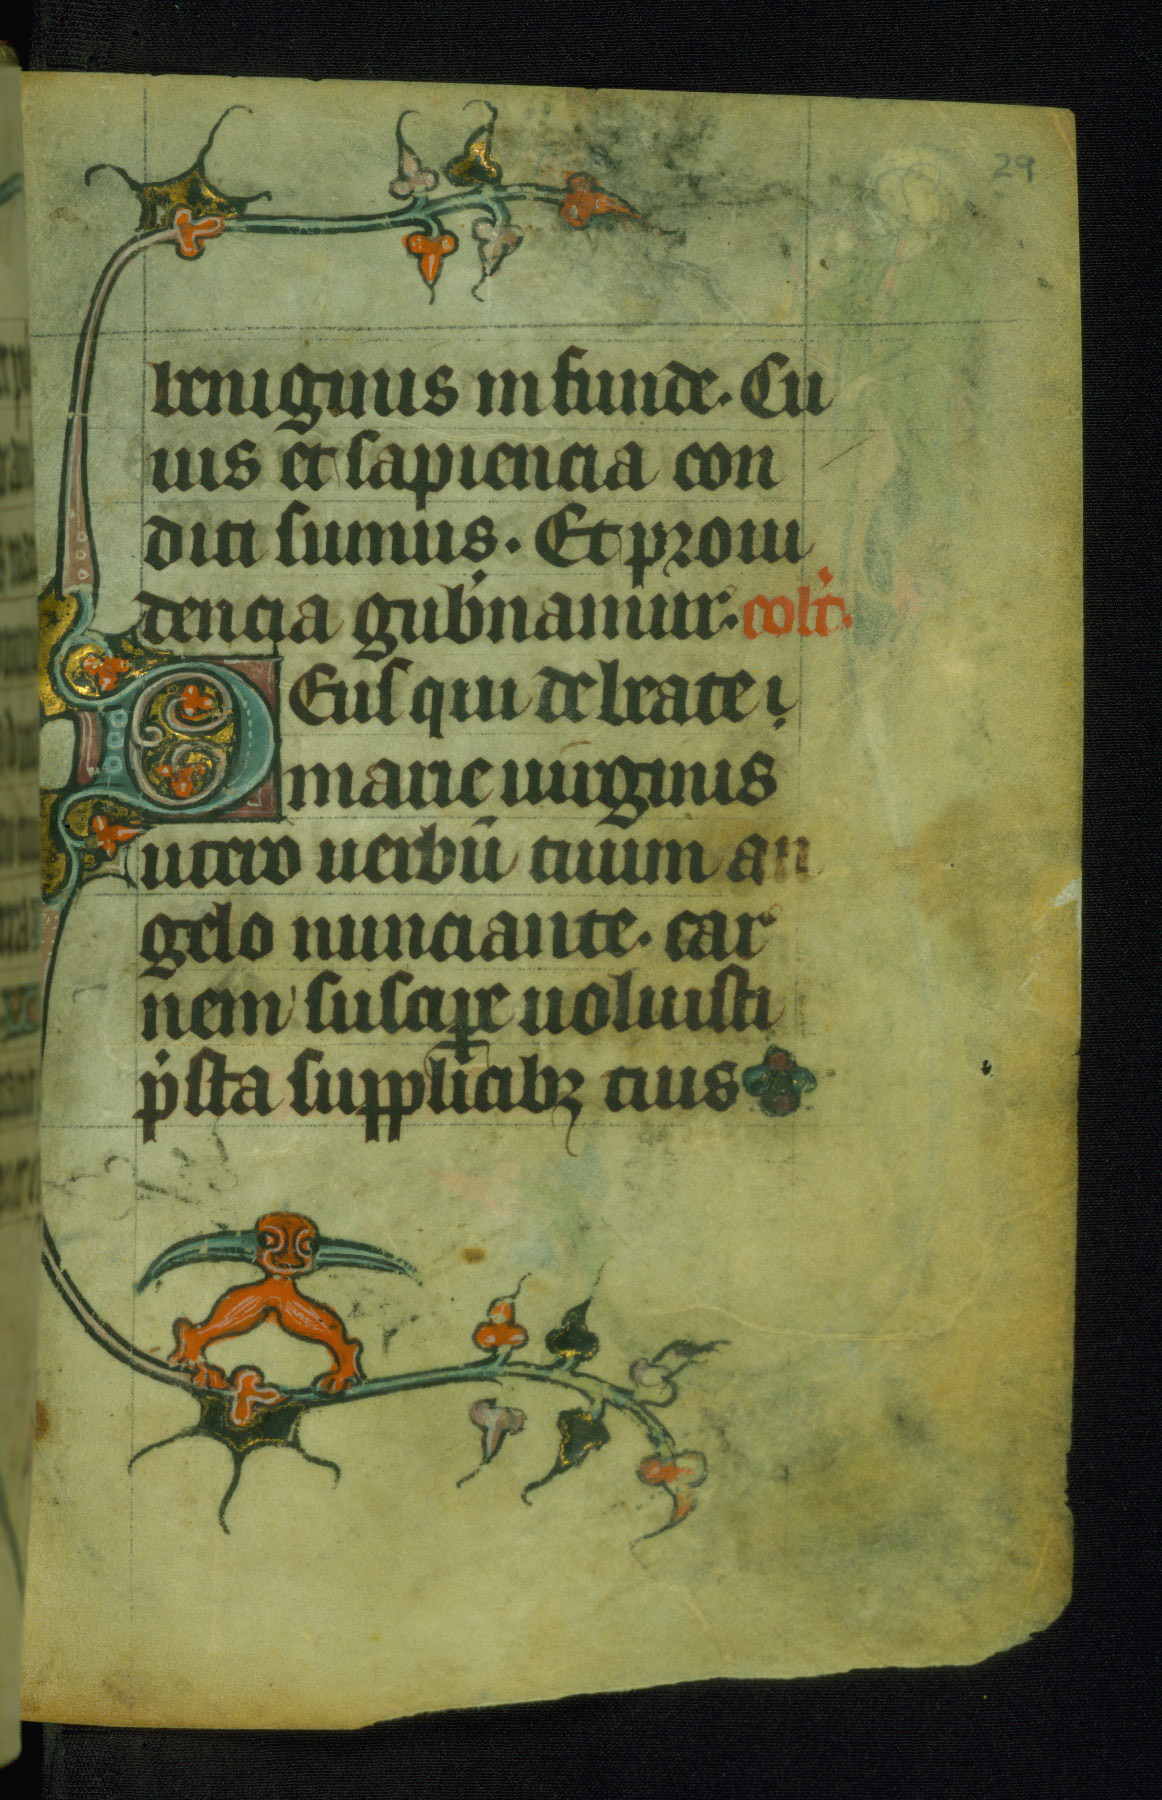 29
benignus infunde. Cu
ius et sapiencia con
diti sumus. Et proui
dencia gub'namur. coll'.
Deus qui de beate
marie uirginis
utero uerbū tuum an
gelo nunciante. car
nem suscipe uoluisti
p'sta supplicibꝫ tuis